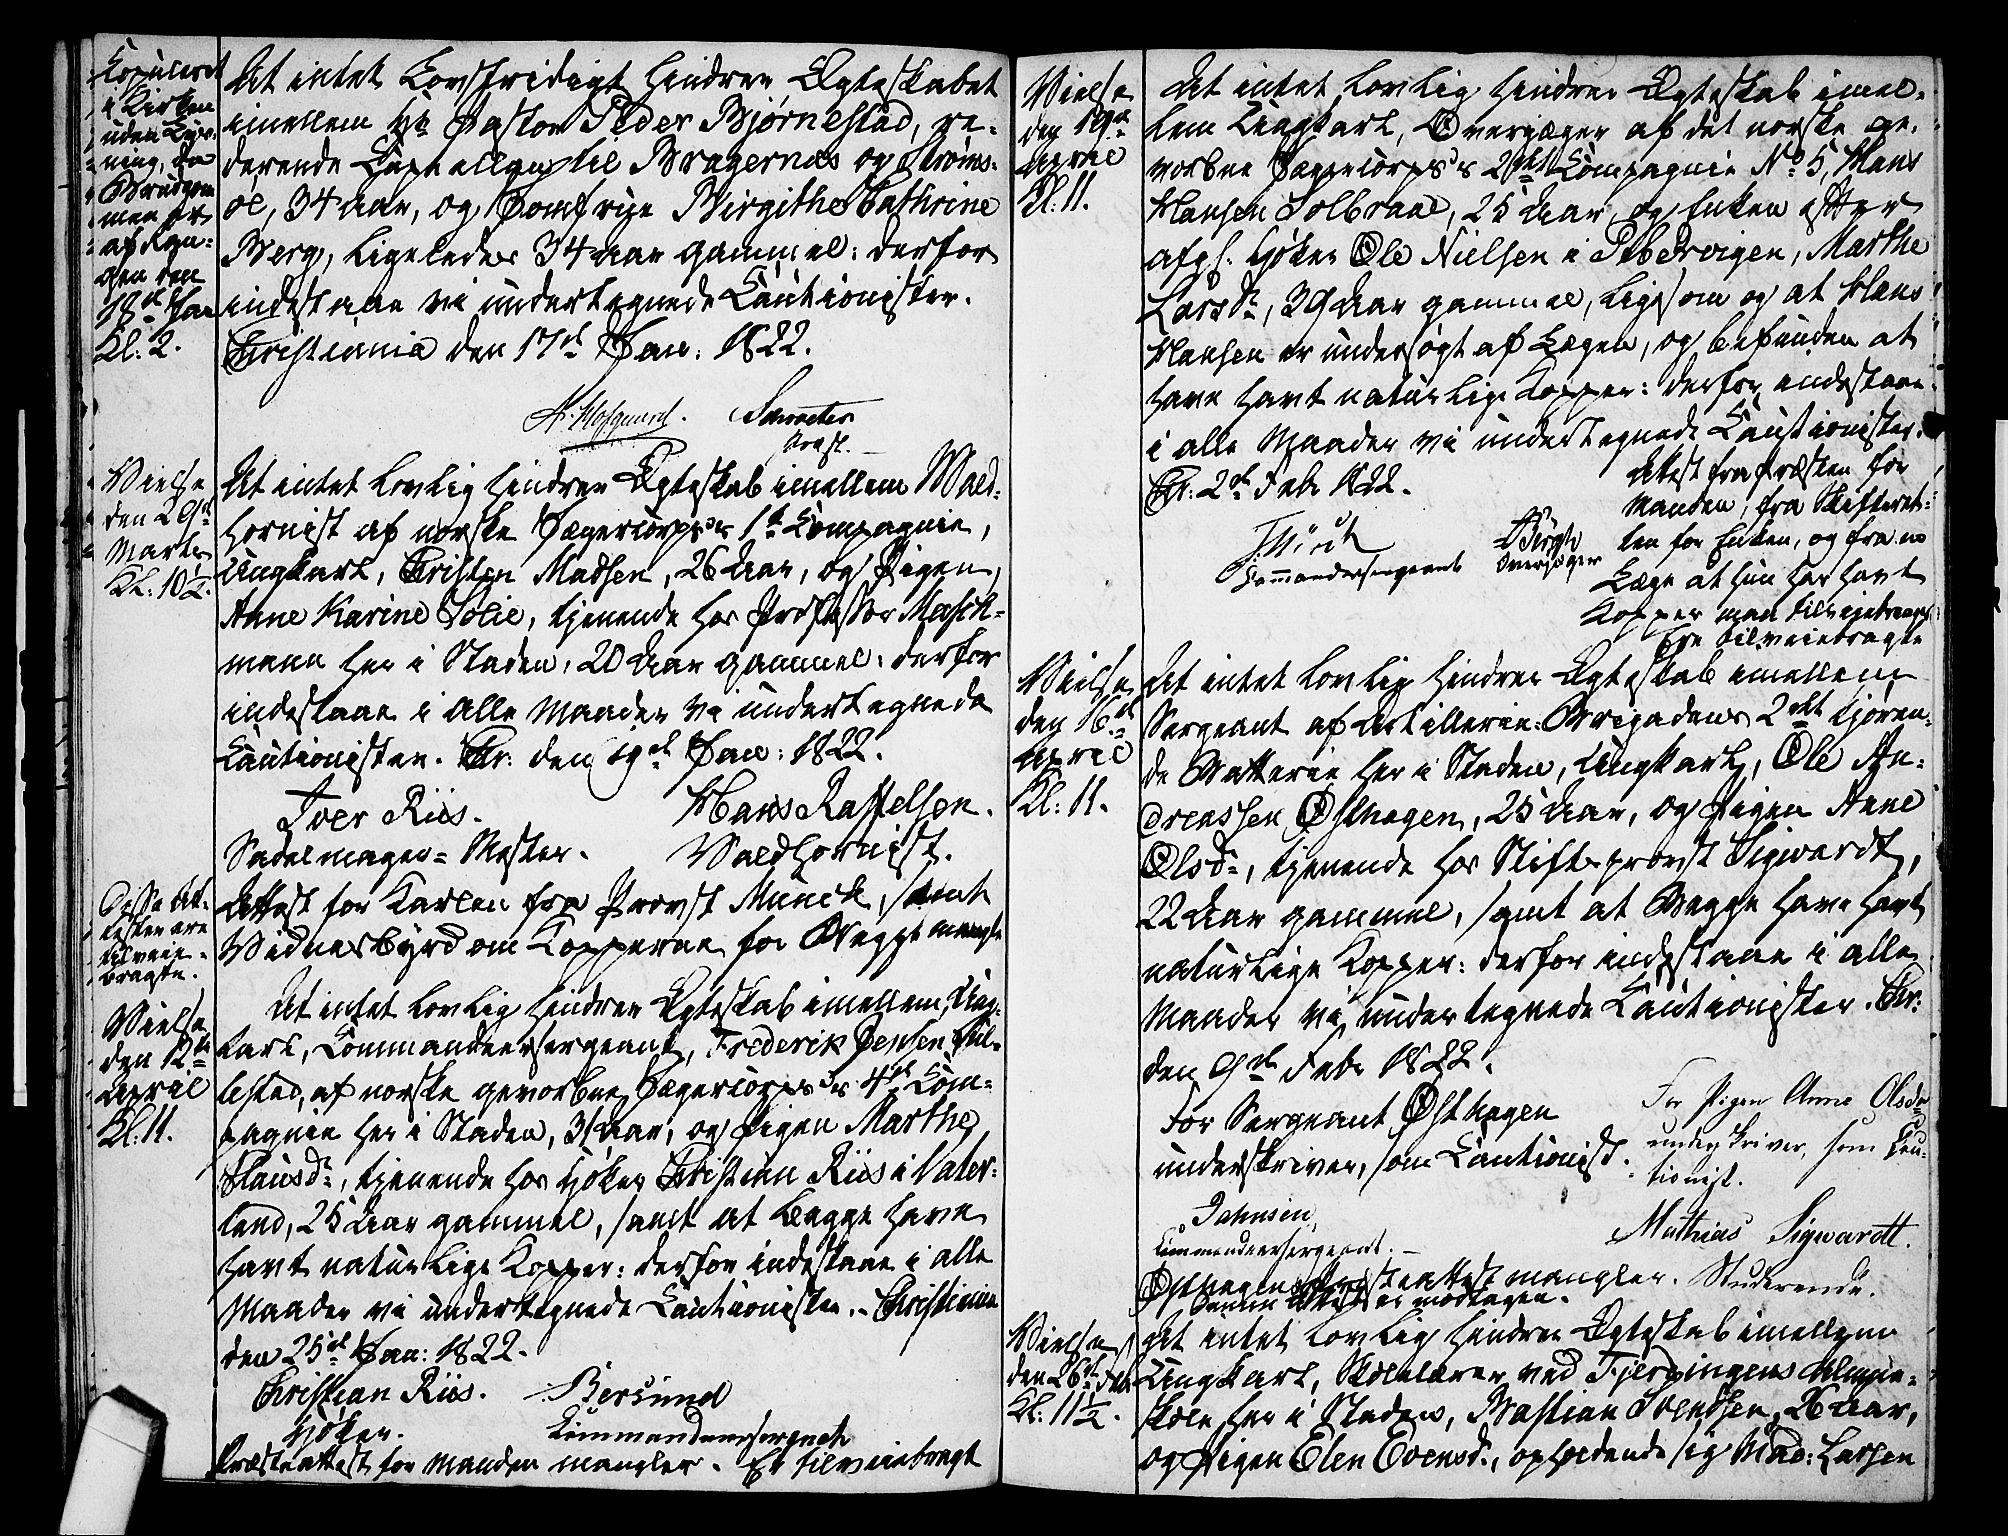 Copuleret
i Kirken
uden Lys-
ning, da
Brudgom-
men er
af Ran-
gen den
18de Jan
Kl: 2.
At intet Lovstridigt hindrer Ægteskabet
imellem Hr Pastor Peder Bjørnestad, re-
derende Capellan til Bragernæs og Strøms-
öe, 34 Aar, og Jomfrue Birgithe Cathrine
Berg, ligeledes 34 Aar gammel: derfor
indestaae vi undertegnede Cautionister.
Christiania den 17d Jan: 1822.
N. Hofgaard. Schrøeter
Provst.
Vielse
den 29de
Marts
Kl: 10½.
At intet Lovlig hindrer Ægteskab imellem Wald-
hornist af norske Jægercorps's 1ste Compagnie,
Ungkarl, Christen Madsen, 26 Aar, og Pigen,
Anne Karine Solie, tjenende hos Professor Masch-
mann her i Staden, 20 Aar gammel: derfor
indestaae i alle Maader vi undertegnede
Cautionister. Chr: den 19de Jan: 1822.
Iver Riis. Hans Raffelsen.
Sadelmager-Mester. Waldhornist.
Disse At-
tester ere
tilveie-
bragte.
Attest for Karlen fra Provst Munch, samt
Vidnesbyrd om Kopperne for Begge mangle
Vielse
den 12te
April
Kl: 11.
At intet Lovlig hindrer Ægteskab imellem Ung-
karl, Commandeersergeant, Frederik Jensen Ful-
lestad, af norske gevorbne Jægercorps's 4de Com-
pagnie her i Staden, 31 Aar, og Pigen Marthe
Clausdr, tjenende hos Høker Christian Riis i Vater-
land, 25 Aar gammel, samt at Begge have
havt naturlige Kopper: derfor indestaae i alle
Maader vi undertegnede Cautionister. Christiania
den 25de Jan: 1822.
Christian Riis. Bersund
Høker. Commandeersergeant
Præsteattest for Manden mangler. Er tilveiebragt
Vielse
den 19de
April
Kl: 11.
At intet Lovlig hindrer Ægteskab imel-
lem Ungkarl, Overjæger af det norske ge-
vorbne Jægercorps's 2det Compagnie No 5, Hans
Hansen Solbraae, 25 Aar og Enken efter
afg. Høker Ole Nielsen i Pibervigen, Marthe
Larsdr, 39 Aar gammel, ligesom og at Hans
Hansen er undersøgt af Lægen, og befunden at
have havt naturlige Kopper: derfor indestaae
i alle Maader vi undertegnede Cautionister.
Chr: 2de Febr 1822.
Commandersergeant Overjæger
Attest fra Præsten for
Manden, fra Skifteret-
ten for Enken, og fra en
Læge at hun har havt
Kopper maa tilveiebringes.
Ere tilveiebragte
Vielse
den 16de
April
Kl: 11.
At intet Lovlig hindrer Ægteskab imellem
Sergeant af Artillerie-Brigadens 2det kjøren-
de Batterie her i Staden, Ungkarl, Ole An-
dreassen Østhagen, 25 Aar, og Pigen Anne
Olsdr, tjenende hos Stiftsprovst Sigwardt,
22 Aar gammel, samt at Begge have havt
naturlige Kopper: derfor indestaae i alle
Maader vi undertegnede Cautionister. Chr:
den 9de Febr 1822.
For Sergeant Østhagen
underskriver, som Cautionist.
Johnsen
Commandeersergeant.
For Pigen Anne Olsdr
underskriver, som Cau-
tionist.
Mathias Sigwardt.
Studerende.
Østhagens Præsteattest mangler.
Denne Attest er modtagen.
Vielse
den 26de Feb
Kl: 11½.
At intet Lovlig hindrer Ægteskab imellem
Ungkarl, Skolelærer ved Fjerdingens Almue-
skole her i Staden, Bastian Svendsen, 26 Aar,
og Pigen Elen Evensd., opholdende sig Mad: Larsen